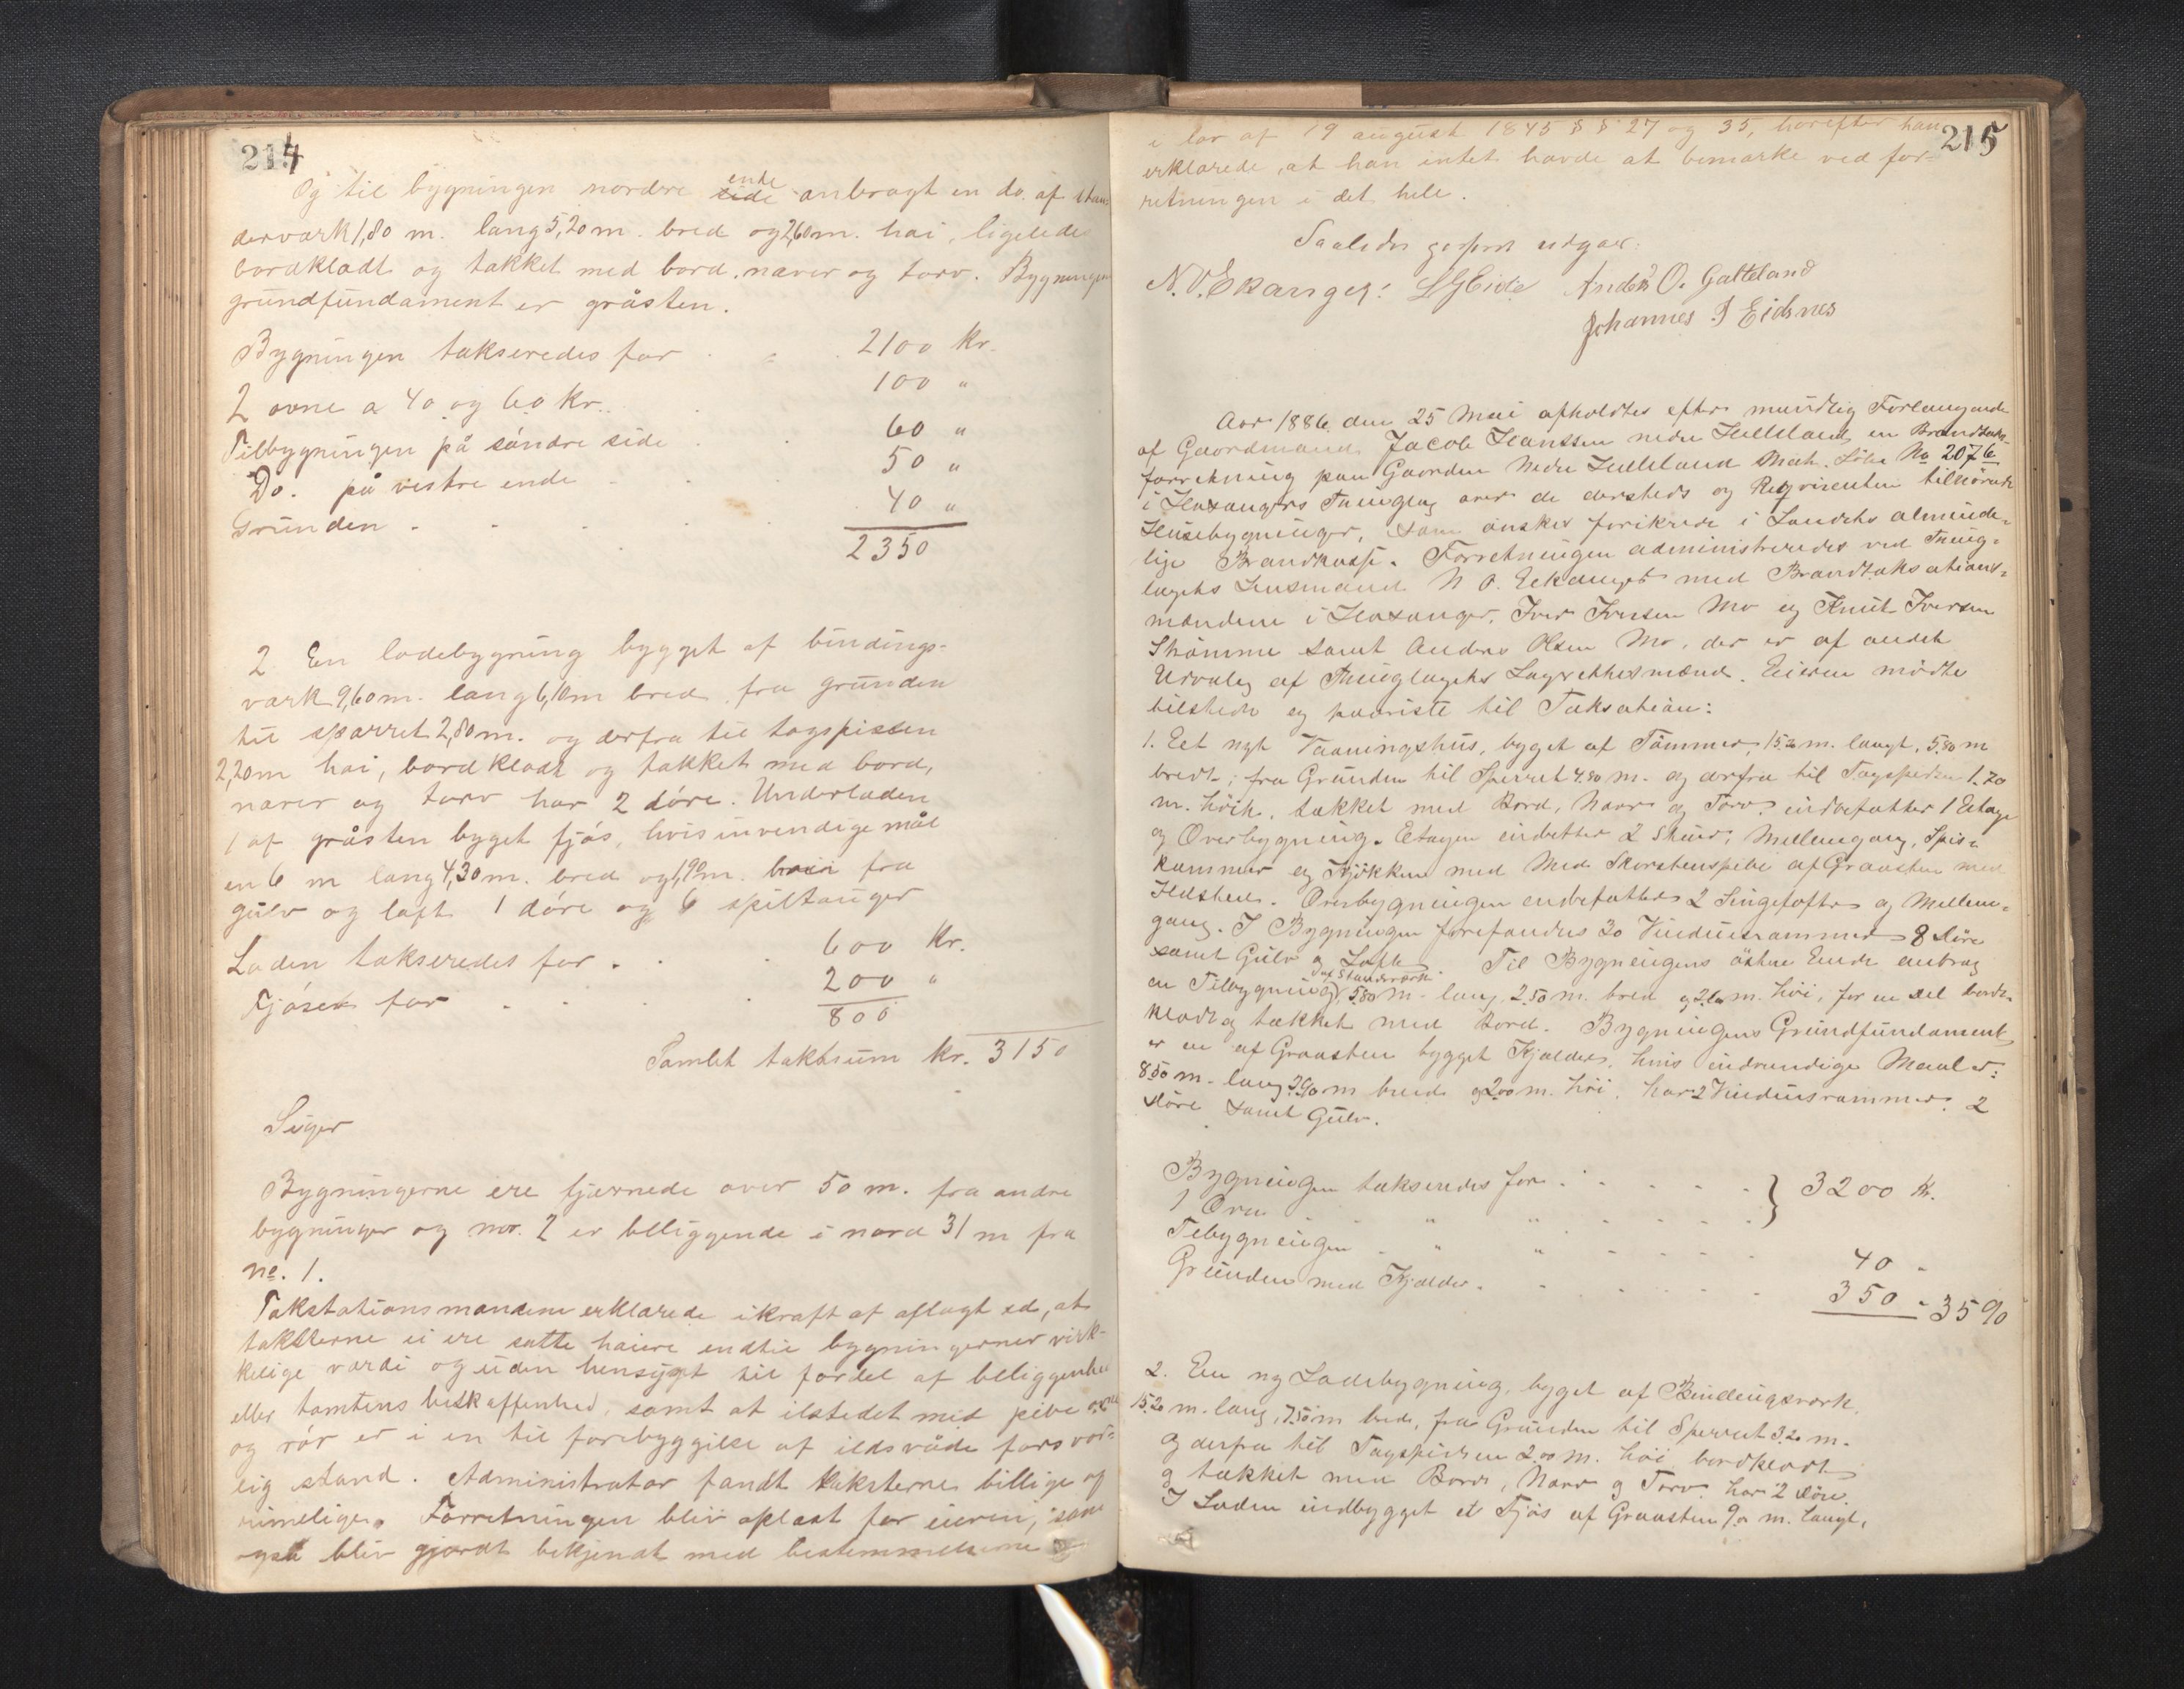 214
Og til bygningen nordre ende anbragt en do. af stan
dervark 1,80 m. lang 5,20 m. bred og 2,60 m. høi, ligelede
bordkladt og takket med bord, naver og torv. Bygningens
grundfundament er gråsten.
Bygningen takseredes for 2100 Kr.
2 ovne a 40 og 60 Kr. 100 "
Tilbygningen på søndre side 60 "
Do. på vestre ende 50 "
Grunden 40 "
2350
2. En ladebygning bygget af bindings-
vark 9,60 m. lang 6,10 m bred, fra grunden
til sparret 2,80 m. og derfra til tagspissen
2,20 m høi, bordkladt og takket med bord,
naver og torv har 2 døre. Underladen
1 af gråsten byget fjøs, hvis invendige mål
en 6 m lang 4,30 m. bred og 1,90 m. fra
gulv og loft 1 døre og 6 spiltauger
Laden takseredes for 600 Kr.
Fjøset for 200 "
800
Samlet takstsum kr. 3150
Siger
Bygningerne ere fjærnede over 50 m. fra andre
bygninger og no. 2 er beliggende i nord 31 m fra
no. 1.
Takstationsmandene erklarede ikraft af aflagt ed, at
taksterne ei ere satte høiere endtil bygningernes virk-
kelige vardi og uden hensygt til fordel af beliggenhed
eller tomtens beskaffenhed, samt at ilstedet med pibe ovne
og rør er i en til forebyggilse af ildsvåde forsvar-
lig stand. Administrator fandt taksterne billige og
rimelige. Forretningen bliv oplæst for eieren, som
også blev gjordt bekjendt med bestemmelserne
215
i lov af 19 august 1845 § § 27 og 35, horefter han
erklarede, at han intet havde at bemarke ved for-
retningen i det hele.
Saaledes passeret udgaar:
N. O. Ekanger. L G Eide Anders O. Galteland
Johannes J Eidsnes
Aar 1886, den 25 Mai afholdtes efter mundtlig Forlangende
af Gaardmand Jacob Hanssen nedre Helleland en Brandtakst-
forretning paa Gaarden Nedre Helleland Matr. Løbe No 207 b
i Hosangers Tinglag over de dersteds og Reqvirenten tilhørende
Husebygninger, som ønskes forsikrede i Landets alminde-
lige Brandkasse. Forretningen administreredes ved Thing-
lagets Lensmand N O. Eekanger med Brandtaksations-
mændene i Hosanger, Iver Iversen Mo og Knut Iversen
Skømme samt Anders Olsen Mo, der er af andet
Udvalg af Thinglagets Lagrettesmænd. Eieren mødte
tilstede og paaviste til Taksation:
1. Eet nyt Vaaningshus, bygget af Tømmer, 15.20 m. langt, 5.80 m
bredt, fra Grunden til Sperret 4.80 m. og derfra til Tagspidsen 1.70
m. høit, tækket med Bord, Næver og Torv, indbefatter 1 Etage
og Overbygning. Etagen indbefatter 2 Stuer, Mellemgang, Spis-
kammer og Kjøkken med Med Skorstenspibe af Graasten med
Ildsted. Overbygningen indbefatter 2 Sengelofter og Mellem-
gang. I Bygningen forefandtes 30 Vinduesrammer 8 Døre
samt Gulv og Loft. Til Bygningens østre Ende anbrag
en Tilbygning af Standerværk 5.80 m. lang, 2.50 m. bred og 2.60 m. høi, for en Del bord-
klædt og tækket med Bord. Bygningens Grundfundament
er en af Graasten bygget Kjælder, hvis indvendige Maal er:
8.50 m. lang 3.90 m bred og 2.00 m. høi, har 2 Vinduesrammer, 2
Døre samt Gulv.
Bygningen takseredes for } 3200 Kr.
1 Ovn " "
Tilbygningen " " 40 "
Grunden med Kjælder 350 " 3590
2. En ny Ladebygning, bygget af Bindingsværk,
15.20 m. lang, 7.50 m bred, fra Grunden til Sperret 3.20 m.
og derfra til Tagspidsen 2.00 m. høi, bordklædt
og tækket med Bord, Næver og Torv, har 2 Døre.
I Laden indbygget et Fjøs af Graasten 9. m. langt,